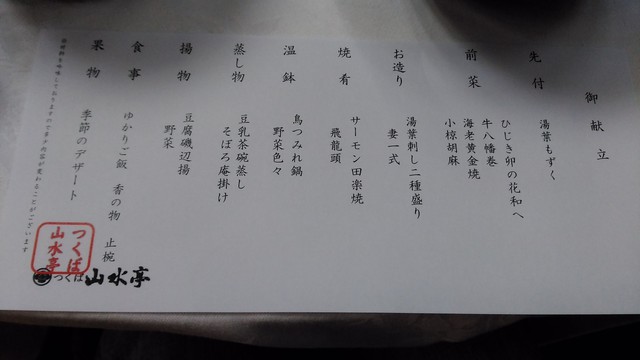 御献立
先付
湯葉もずく
前菜
ひじき卯の花和へ
牛八幡巻
海老黄金焼
小椋胡麻
お造り
湯葉刺し二種盛り
妻一式
焼肴
サーモン田楽焼
飛龍頭
温鉢
鳥つみれ鍋
野菜色々
蒸し物
豆乳茶碗蒸し
そぼろ庵掛け
揚物
豆腐磯辺揚
野菜
食事
ゆかりご飯 香の物 止椀
果物
季節のデザート
つくば
山水亭
つくば山水亭